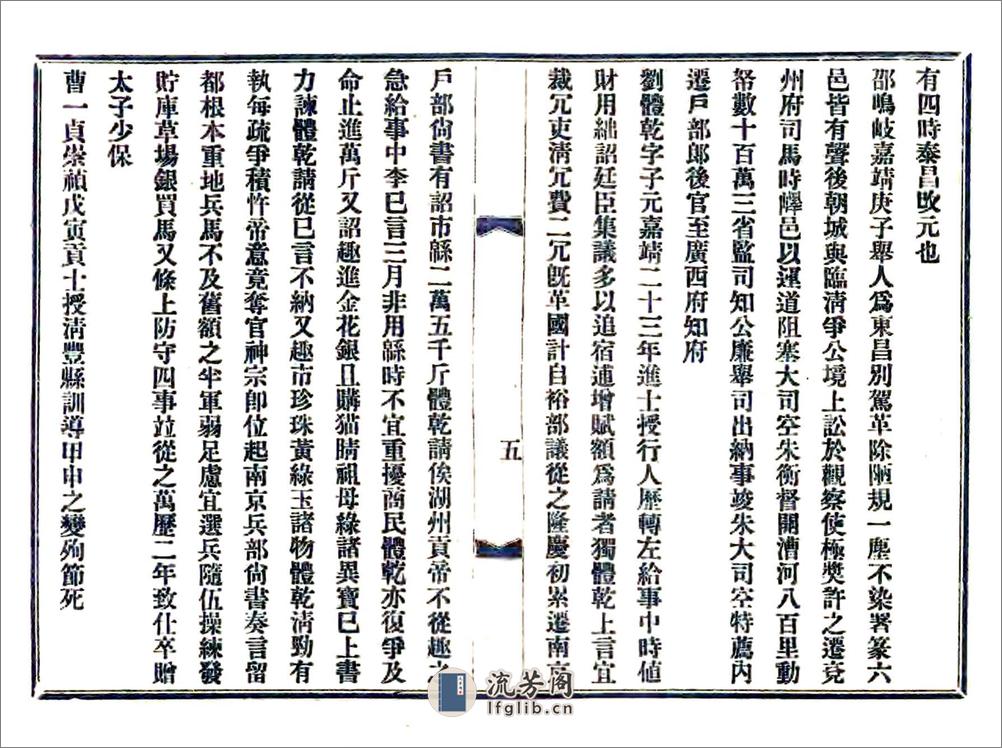 有四時泰昌改元也
邵鳴岐嘉靖庚子舉人爲東昌別駕革除陋規一塵不染署篆六
邑皆有聲後朝城與臨淸爭公境上訟於觀察使極獎許之遷兗
州府司馬時嶧邑以運道阻塞大司空朱衡督開漕河八百里動
帑數十百萬三省監司知公廉舉司出納事竣朱大司空特薦內
遷戶部郎後官至廣西府知府
劉體乾字子元嘉靖二十三年進士授行人歷轉左給事中時値
財用絀詔廷臣集議多以追宿逋增賦額爲請者獨體乾上言宜
裁冗吏淸冗費二冗旣革國計自裕部議從之隆慶初累遷南京
五
戶部尙書有詔市緜二萬五千斤體乾請俟湖州貢帝不從趣之
急給事中李已言三月非用緜時不宜重擾商民體乾亦復爭及
命止進萬斤又詔趣進金花銀且購猫睛祖母綠諸異寶已上書
力諫體乾請從已言不納又趣市珍珠黃綠玉諸物體乾淸勁有
執每疏爭積忤帝意竟奪官神宗卽位起南京兵部尙書奏言留
都根本重地兵馬不及舊額之半軍弱足慮宜選兵隨伍操練發
貯庫草場銀買馬又條上防守四事竝從之萬歷二年致仕卒贈
太子少保
曹一貞崇禎戊寅貢士授淸豐縣訓導甲申之變殉節死
流芳阁
lfglib.cn